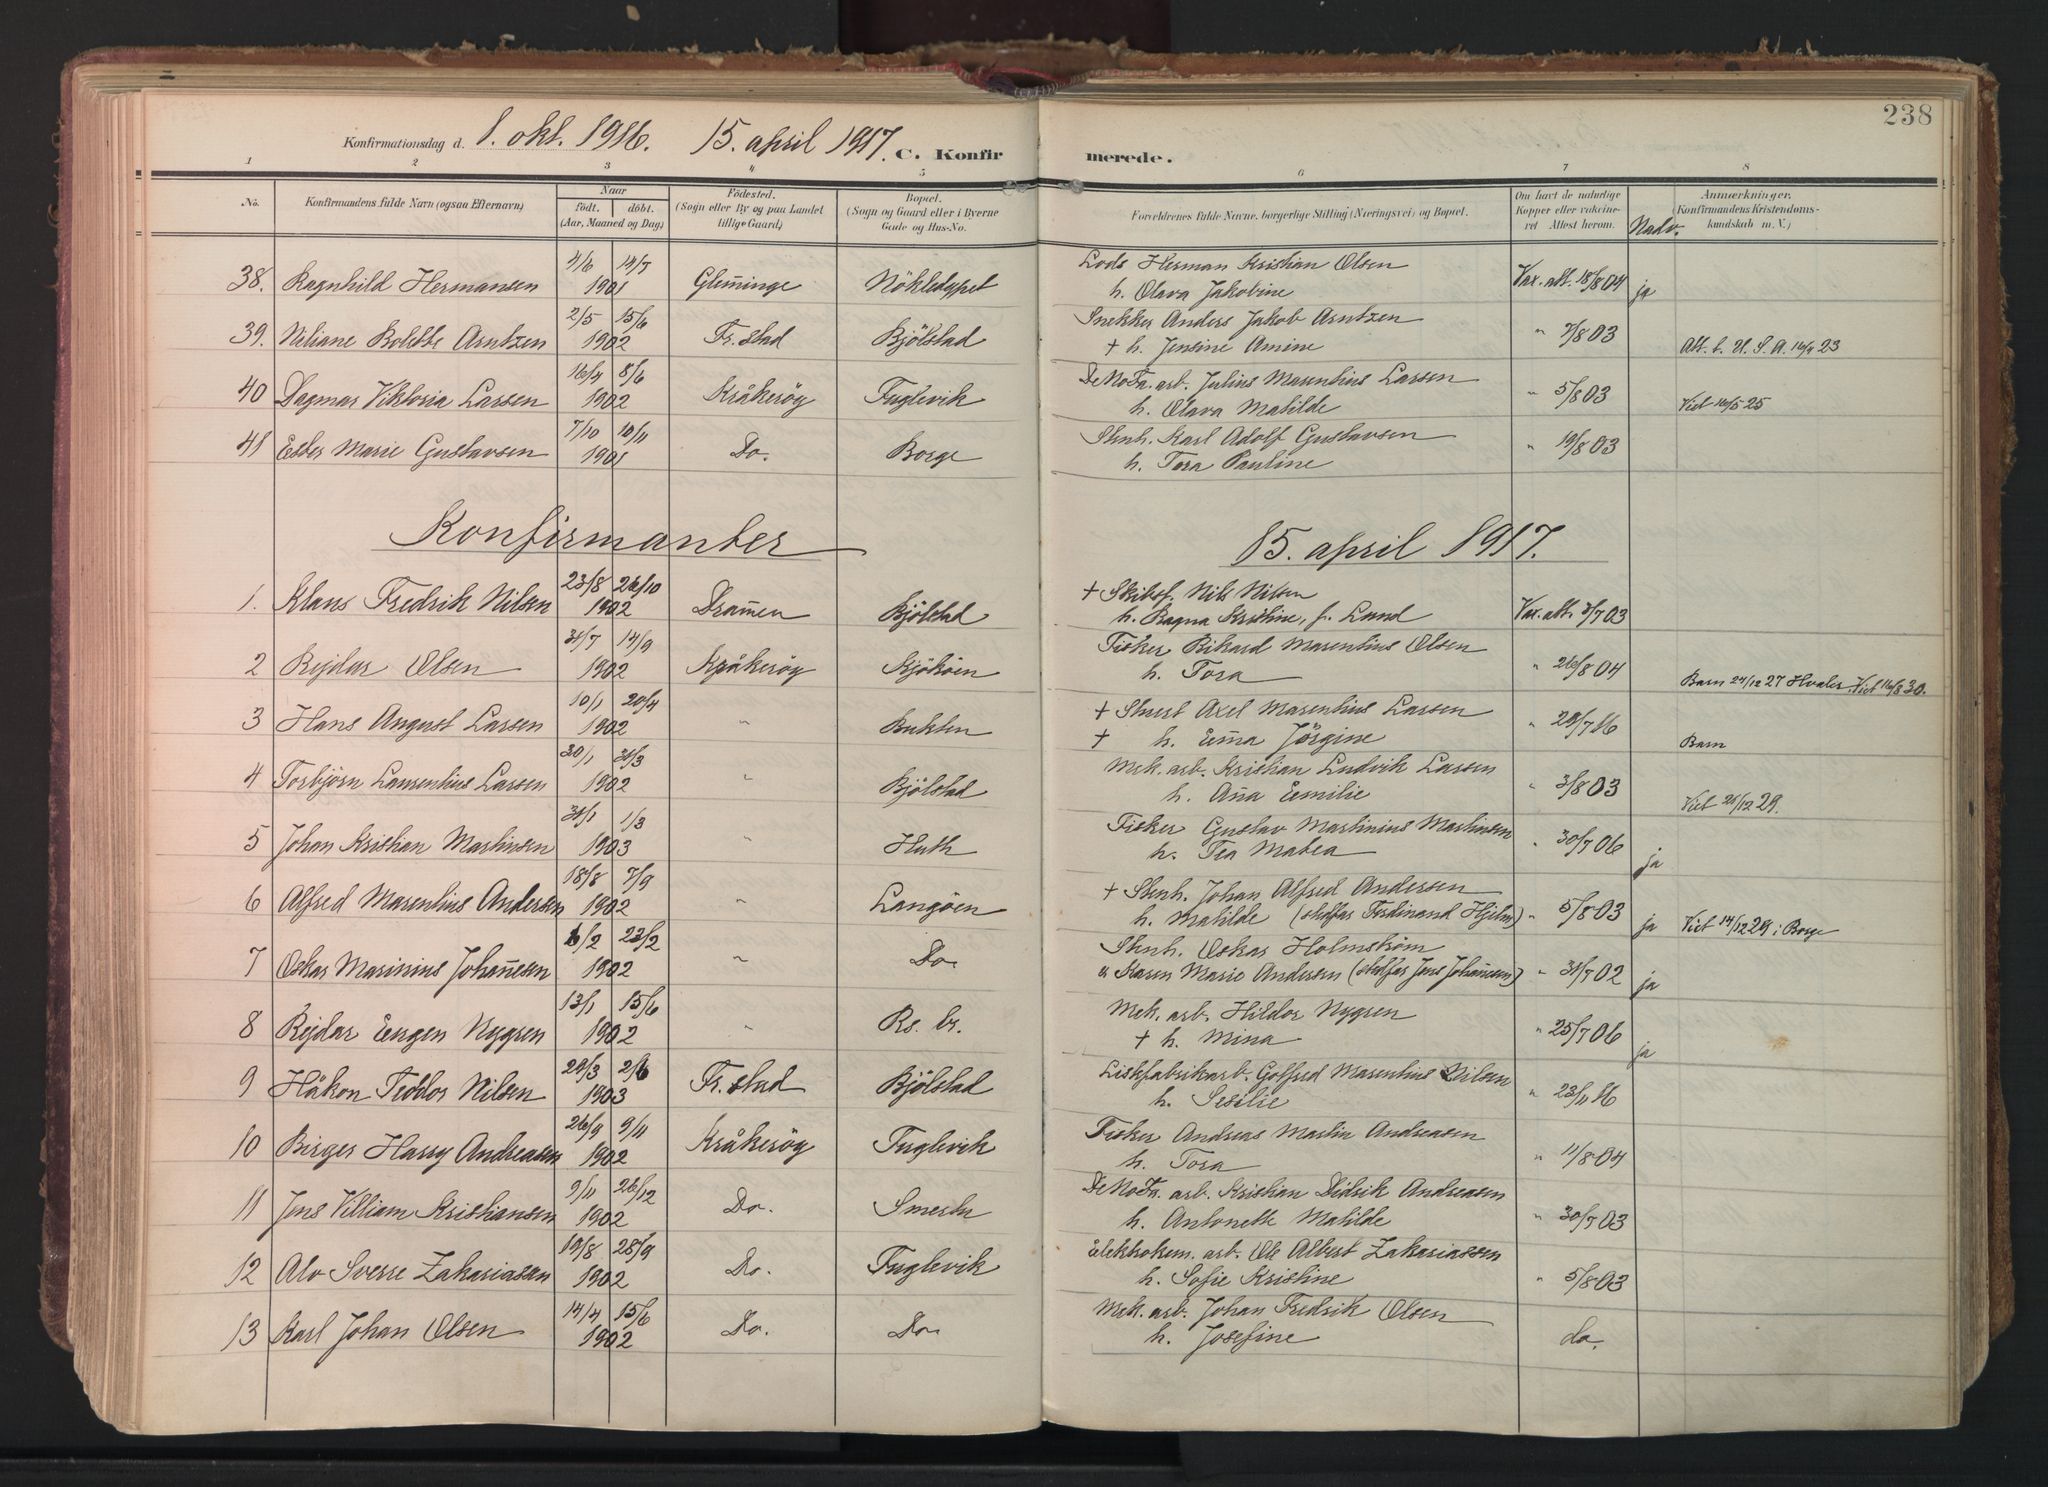 238
Konfirmationsdag d. 1. okt. 1916. 15. april 1917. C. Konfirmerede.
1 2 3 4 5 6 7 8
No. Konfirmandens fulde Navn (ogsaa Efternavn) Naar født. døbt. (Aar, Maaned og Dag) Fødested. (Sogn eller By og paa Landet tillige Gaard) Bopæl. (Sogn og Gaard eller i Byerne Gade og Hus-No. Forældrenes fulde Navne, borgerlige Stilling (Næringsvei) og Bopæl. Om havt de naturlige Kopper eller vaccineret Attest herom. Nadv. Anmærkninger. Konfirmandens Kristendomskundskab m. V.)
38. Ragnhild Hermansen 4/6 14/7 1901 Glem̄inge Nökledypet Lods Herman Kristian Olsen h. Olava Jakobine Vax. att. 18/8 04 ja
39. Niliane Bolette Arntzen 2/5 15/6 1902 Fr.stad Bjölstad Snekker Anders Jakob Arntzen + h. Jensine Amine " 7/8 03 Att. t. U. S. A. 16/4 23
40 Dagmar Viktoria Larsen 16/4 8/6 1902 Kråkeröy Fuglevik DeNoFa. arb. Julius Marentius Larsen h. Olava Matilde " 5/8 03 Viet 16/5 25
41 Ester Marie Gustavsen 7/10 10/11 1901 Do. Borge Stenh. Karl Adolf Gustavsen h. Tora Pauline " 19/8 03
Konfirmanter 15. april 1917.
1. Klaus Fredrik Nilsen 23/8 26/10 1902 Dram̄en Bjölstad + Skibsf. Nils Nilsen h. Ragna Kristine, f. Lund Vax. att. 3/7 03
2 Rejdar Olsen 31/7 14/9 1902 Kråkeröy Kjököen Fisker Rikard Marentius Olsen h. Tora " 26/8 04 Barn 24/12 27 Hvaler. Viet 16/8 30.
3 Hans August Larsen 10/1 20/4 1902 " Bukten + Stuert Axel Marentius Larsen + h. Em̄a Jörgine " 29/7 16 Barn
4 Torbjörn Laurentius Larsen 30/1 31/3 1902 " Bjölstad Mek. arb. Kristian Ludvik Larsen h. An̄a Emilie " 3/8 03 Viet 26/12 29.
5 Johan Kristian Martinsen 31/1 1/3 1903 " Huth Fisker Gustav Martinius Martinsen h. Tea Matea " 30/7 06 ja
6 Alfred Marentius Andersen 18/8 7/9 1902 " Langöen + Stenh. Johan Alfred Andersen h. Matilde (stedfar Ferdinand Hjelm) " 5/8 03 ja Viet 14/12 29 i Borge
7 Oskar Marinius Johan̄esen 6/2 23/2 1902 " Do. Stenh. Oskar Holmström & Karen Marie Andersen (stedfar Jens Johan̄esen) " 31/7 02 ja
8 Rejdar Eugen Nygren 13/1 15/6 1902 " Rs. br. Mek. arb. Hildor Nygren + h. Mina " 25/7 06 ja
9 Håkon Teodor Nilsen 29/3 2/6 1903 Fr.stad Bjölstad Listfabrikarb. Golfred Marentius Nilsen h. Sesilie " 23/11 16
10 Birger Harry Andreasen 26/9 9/11 1902 Kråkeröy Fuglevik Fisker Andreas Martin Andreasen h. Tora " 11/8 04
11 Jens Villiam Kristiansen 9/11 26/12 1902 Do. Smertu DeNoFa. arb. Kristian Didrik Andreasen h. Antonette Matilde " 30/7 03
12 Alv Sverre Zakariassen 19/8 28/9 1902 Do. Fuglevik Elektrokem. arb. Ole Albert Zakariassen h. Sofie Kristine " 5/8 03
13 Karl Johan Olsen 14/4 15/6 1902 Do. Do. Mek. arb. Johan Fredrik Olsen h. Josefine do.